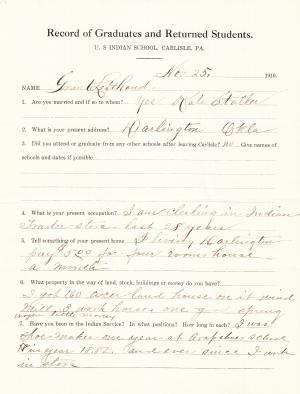 Record of Graduates and Returned Students.
U. S. INDIAN SCHOOL, CARLISLE, PA.
Nov 25, 1910.
NAME Grant Lefthand
1. Are you married and if so to whom? yes Kate Stalker
2. What is your present address? Darlington Okla
3. Did you attend or graduate from any other schools after leaving Carlisle? no Give names
of schools and dates if possible
4. What is your present occupation? I am clerking in Indian
Trader store last 28 years
5. Tell something of your present home I living Darlington
pay $5.00 for four rooms house
a month
6. What property in the way of land, stock, buildings or money do you have?
I got 160 acer land house on it wind
Mill, 3 work horses one good spring
wagon little money
7. Have you been in the Indian Service? In what positions? How long in each? I was
Shoe maker one year at Arapahoe school
in year 1882. and ever since I work
in store